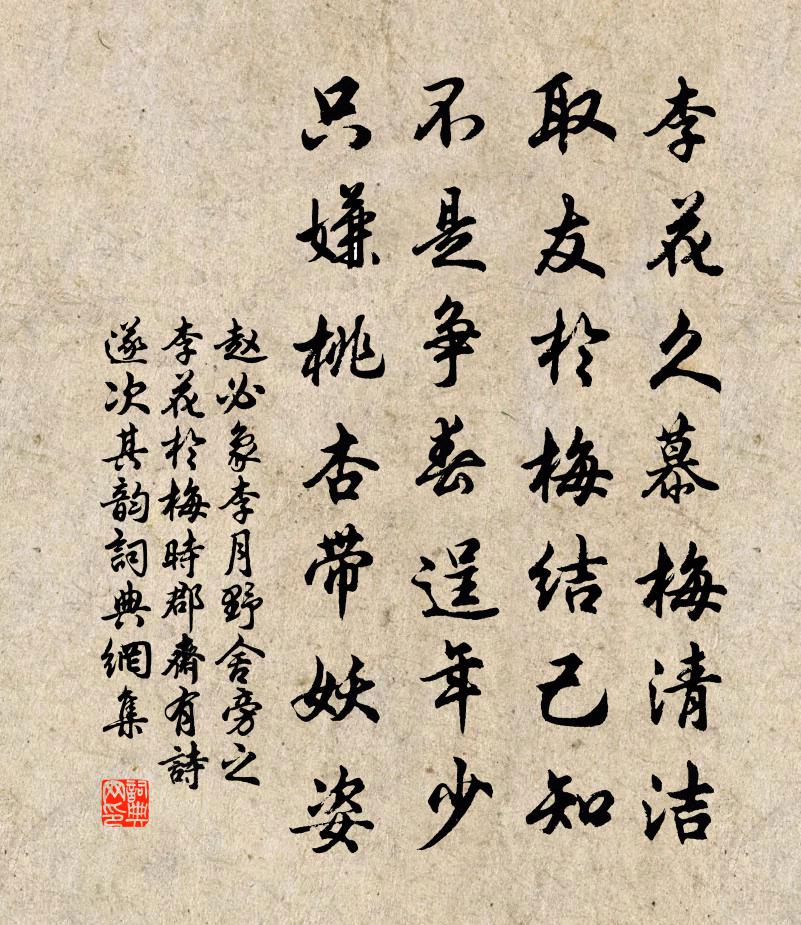 李花久慕梅清洁
取友於梅结己知
不是争春逞年少
只嫌桃杏带妖姿
赵必象李月野舍旁之
李花於梅時郡齋有詩
遂次其韵詞典網集
詞典网印